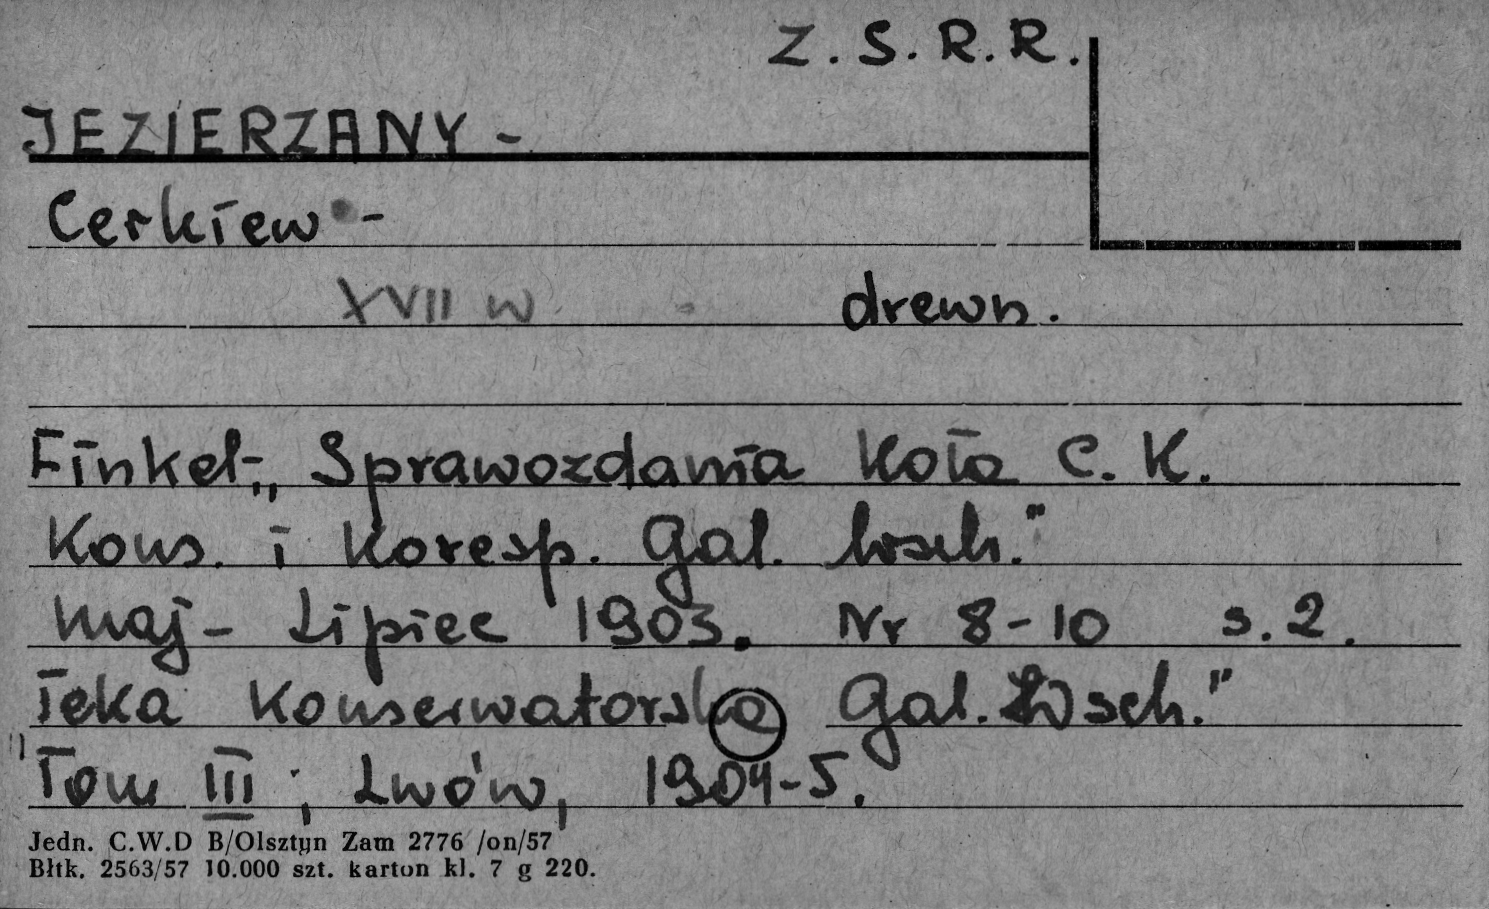 Z.S.R.R.
JEZIERZANY -
Cerkiew -
XVII w drewn.
Finkel „Sprawozdania Koła C.K.
Kons. i Koresp. Gal. Wsch."
maj - Lipiec 1903. Nr 8-10 s.2.
Teka Konserwatorska Gal. Wsch."
"Tom III ; Lwów, 1904-5.
Jedn. C.W.D B/Olsztyn Zam 2776 /on/57
Błtk. 2563/57 10.000 szt. karton kl. 7 g 220.